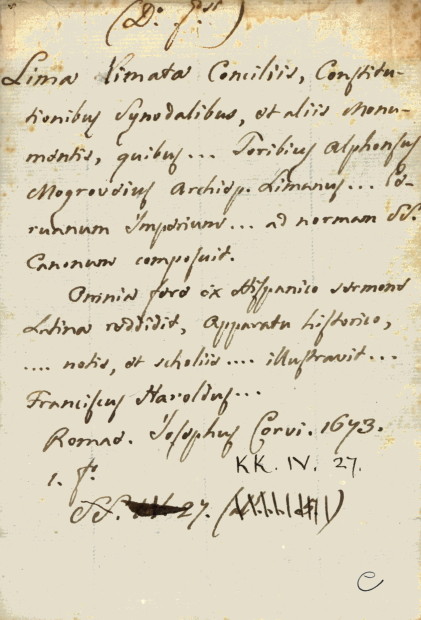 Lima Limata Conciliis, Constitu-
tionibus Synodalibus, et aliis Monu-
mentis, quibus... Toribius Alphonsus
Mogroveius Archiep. Limanus... Eo-
rumnum Imperium... ad normam SS.
Canonum composuit.
Omnia fere ex Hispanico sermone
Latina reddidit, Apparatu historico,
.... notis, et scholiis .... illustravit...
Franciscus Haroldus...
Romae. Josephus Corvi. 1673.
KK. IV. 27.
1. f.º
SS. 27.
C